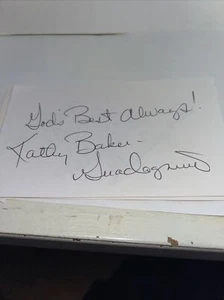 God's Best Always!
Kathy Baker-
Guadagnino